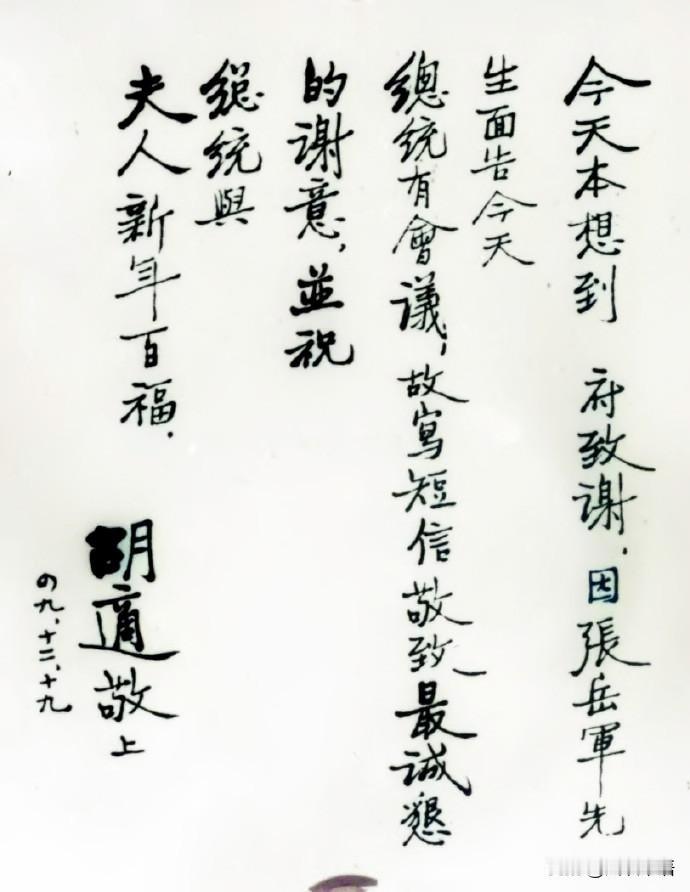 今天本想到　府致谢，因張岳軍先
生面告今天
總统有會議，故寫短信敬致最诚懇
的谢意，並祝
總统與
夫人新年百福．
胡適敬上
四九、十二、十九